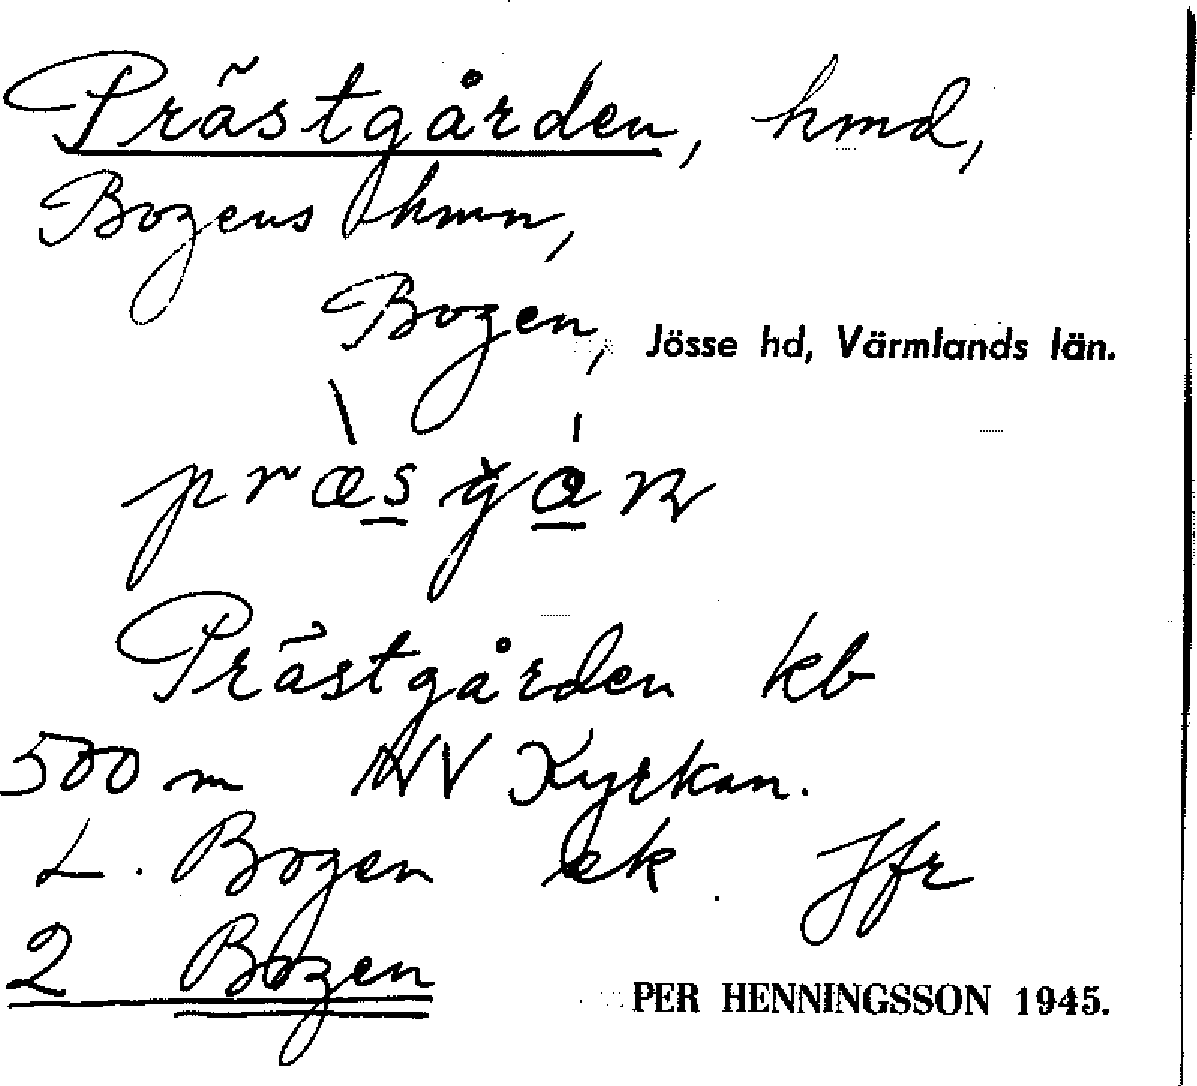 Prästgården, hmd,
Bozens kmn,
Bozen, Jösse hd, Värmlands län.
Prästgården kb
500 m NV Kyrkan.
L. Bozen ek. Jfr
2 Bozen
PER HENNINGSSON 1945.